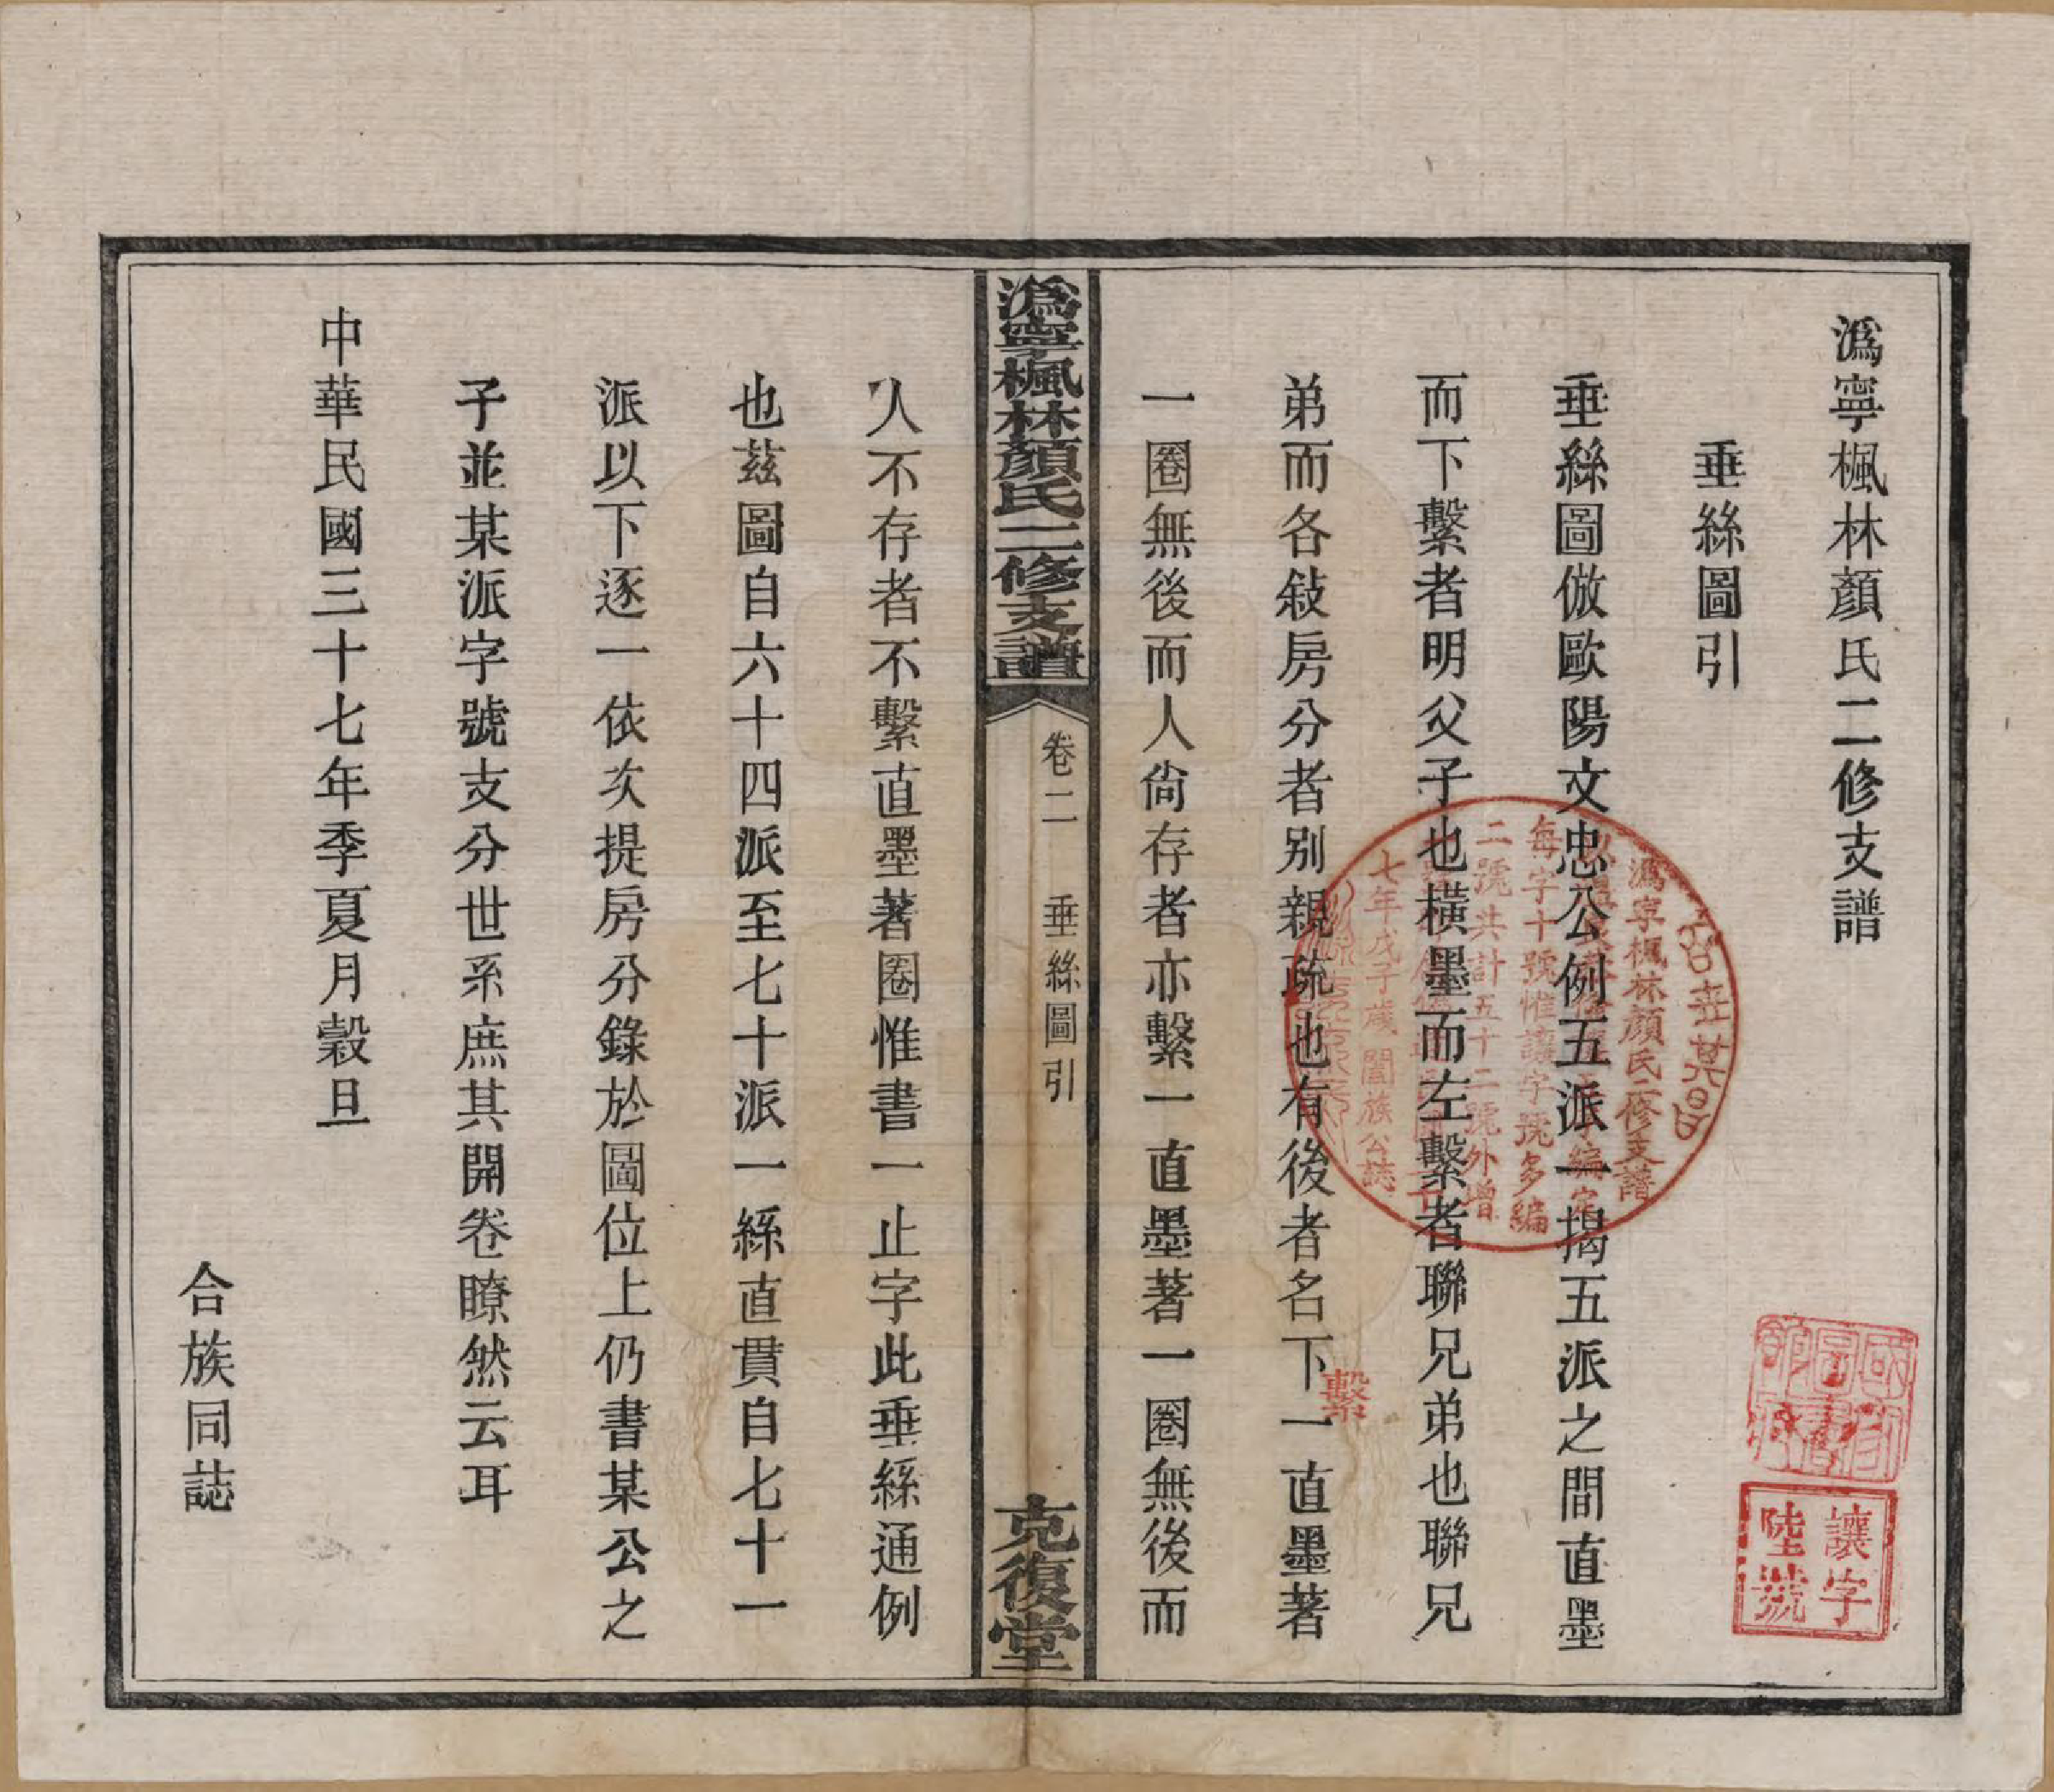 溈寧楓林顏氏二修支譜
垂絲圖引
垂絲圖倣歐陽文忠公例五派一揭五派之間直墨
而下繫者明父子也橫墨而左繫者聯兄弟也聯兄
弟而各敍房分者別親疏也有後者名下一直墨著
繫
一圈無後而人尙存者亦繫一直墨著一圈無後而
溈寧楓林顏氏二修支譜
卷二
垂絲圖引
克復堂
人不存者不繫直墨著圈惟書一止字此垂絲通例
也茲圖自六十四派至七十派一絲直貫自七十一
派以下逐一依次提房分錄於圖位上仍書某公之
子並某派字號支分世系庶其開卷瞭然云耳
中華民國三十七年季夏月穀旦
合族同誌
溈寧楓林顏氏二修支譜
每字十號惟讓字號多編
二號共計五十二號外增
七年戊子歲闔族公誌
讓字
陸號